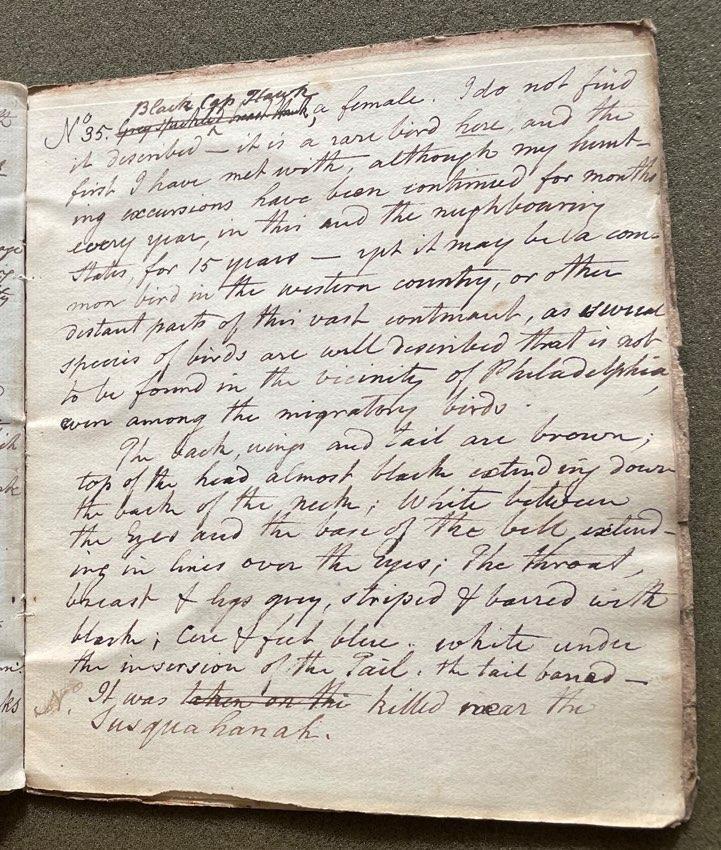 Black Cap Hawk
No 35. Grey speckled breast Hawk, a female. I do not find
it described — it is a rare bird here, and the
first I have met with, although my hunt-
ing excursions have been continued for months
every year, in this and the neighbouring
States, for 15 years — yet it may be a com-
mon bird in the western country, or other
distant parts of this vast continuant, as several
species of birds are well described that is not
to be found in the vicinity of Philadelphia,
even among the migratory birds.
The back, wings and tail are brown;
top of the head almost black extending down
the back of the neck; White between
the Eyes and the base of the bill extend-
ing in lines over the eyes; The throat,
breast & legs grey, striped & barred with
black; Cere & feet blue. white under
the insersion of the Tail. the tail barred —
No
It was taken on this killed near the
Susquahanah.